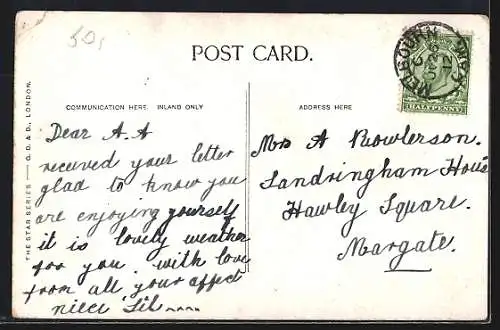 50,
POST CARD.
COMMUNICATION HERE. INLAND ONLY
ADDRESS HERE
THE STAR SERIES — G. D. & D., LONDON.
MELBOURN
HALFPENNY
Dear A. A
received your letter
glad to know you
are enjoying yourself
it is lovely weather
for you. with love
from all your affect
niece Sil
Mrs A Rowlerson.
Sandringham House
Hawley Square.
Margate.